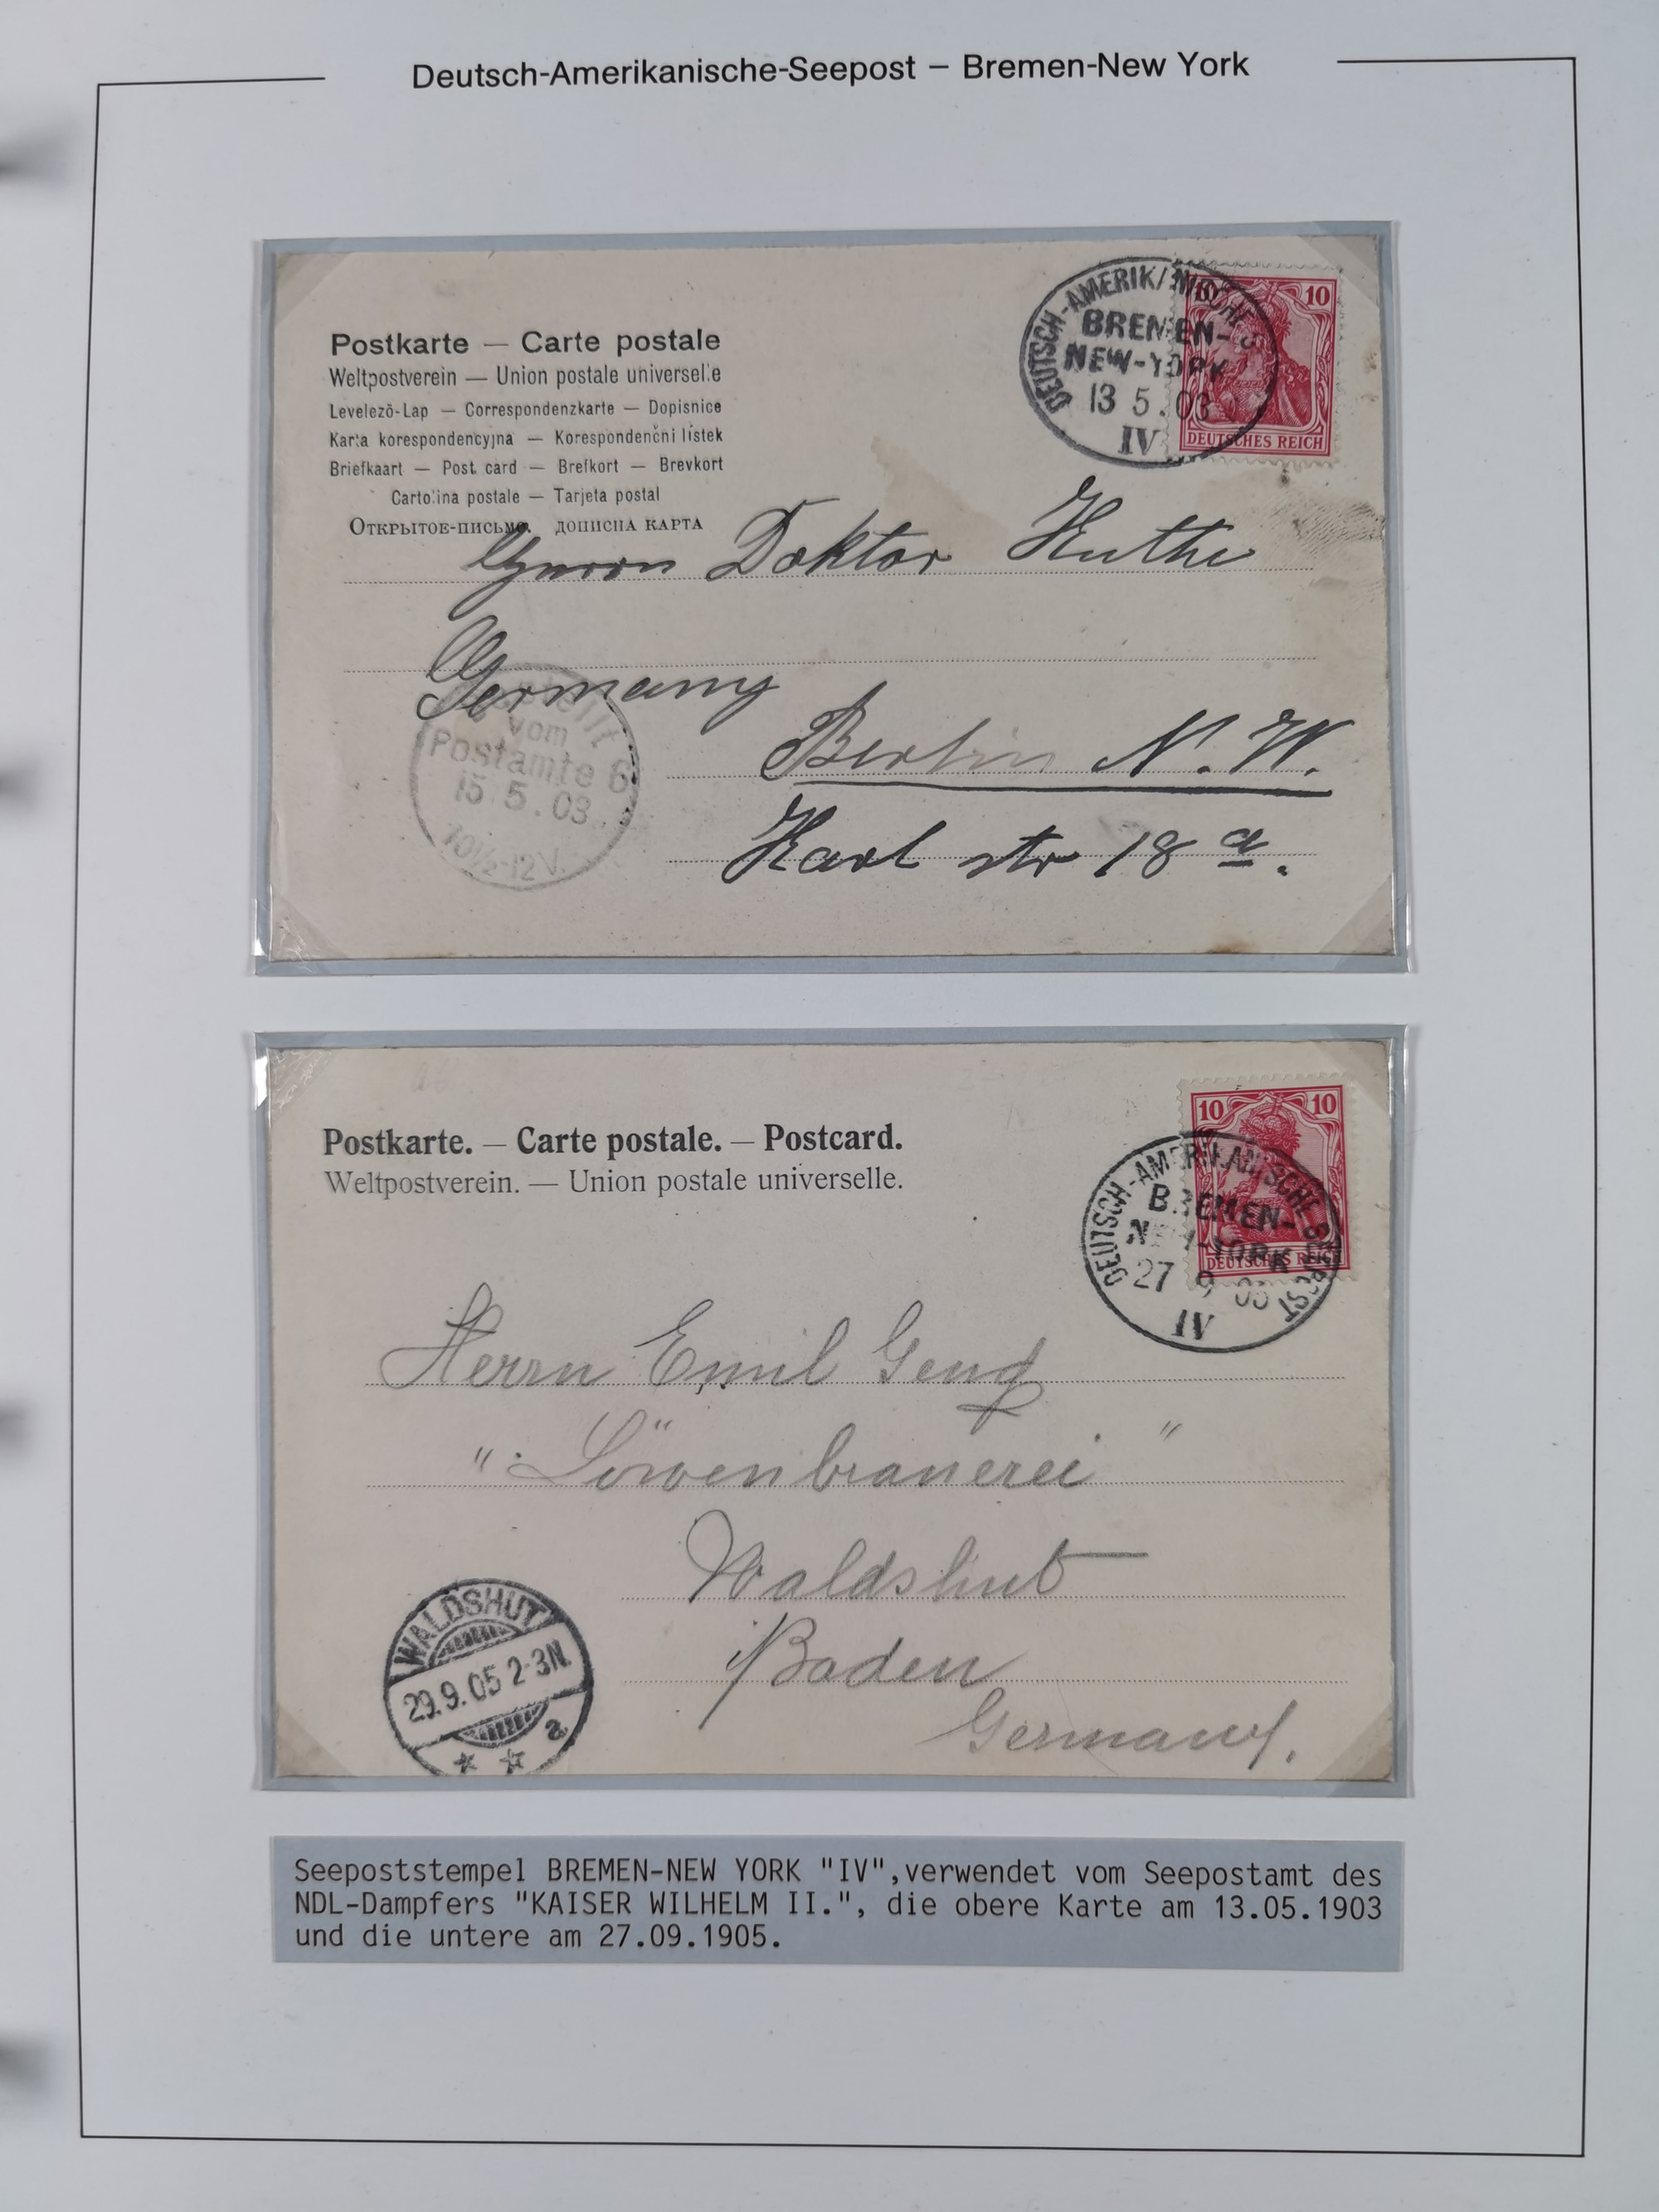 Deutsch-Amerikanische-Seepost – Bremen-New York
Postkarte — Carte postale
Weltpostverein — Union postale universelle
Levelező-Lap — Correspondenzkarte — Dopisnice
Karta korespondencyjna — Korespondenční lístek
Briefkaart — Post card — Brefkort — Brevkort
Cartolina postale — Tarjeta postal
Открытое-письмо. дописна карта
DEUTSCH-AMERIKANISCHE S
BREMEN-
NEW-YORK
13 5.03
IV
10 10
DEUTSCHES REICH
Doktor Kuthe
Germany
Berlin N.W.
Karl str 18 a.
vom
Postamte 6
15.5.03
10½-12V.
Postkarte. — Carte postale. — Postcard.
Weltpostverein. — Union postale universelle.
10 10
DEUTSCHES REICH
DEUTSCH-AMERIKANISCHE SEEPOST
BREMEN-
NEW-YORK
27 9 05
IV
Herrn Emil
"Löwenbrauerei"
Waldshut
i/Baden
Germany.
WALDSHUT
29.9.05 2-3N.
* * a
Seepoststempel BREMEN-NEW YORK "IV",verwendet vom Seepostamt des
NDL-Dampfers "KAISER WILHELM II.", die obere Karte am 13.05.1903
und die untere am 27.09.1905.